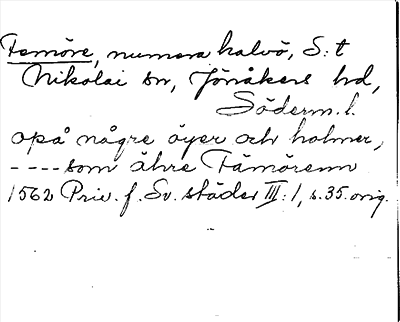 Femöre, numera halvö, S:t
Nikolai sn, Jönåkers hd,
Söderm. l.
opå någre öyer och holmer,
----som ähre Fämörenn
1562 Priv. f. Sv. städer III:1, s. 35. orig.